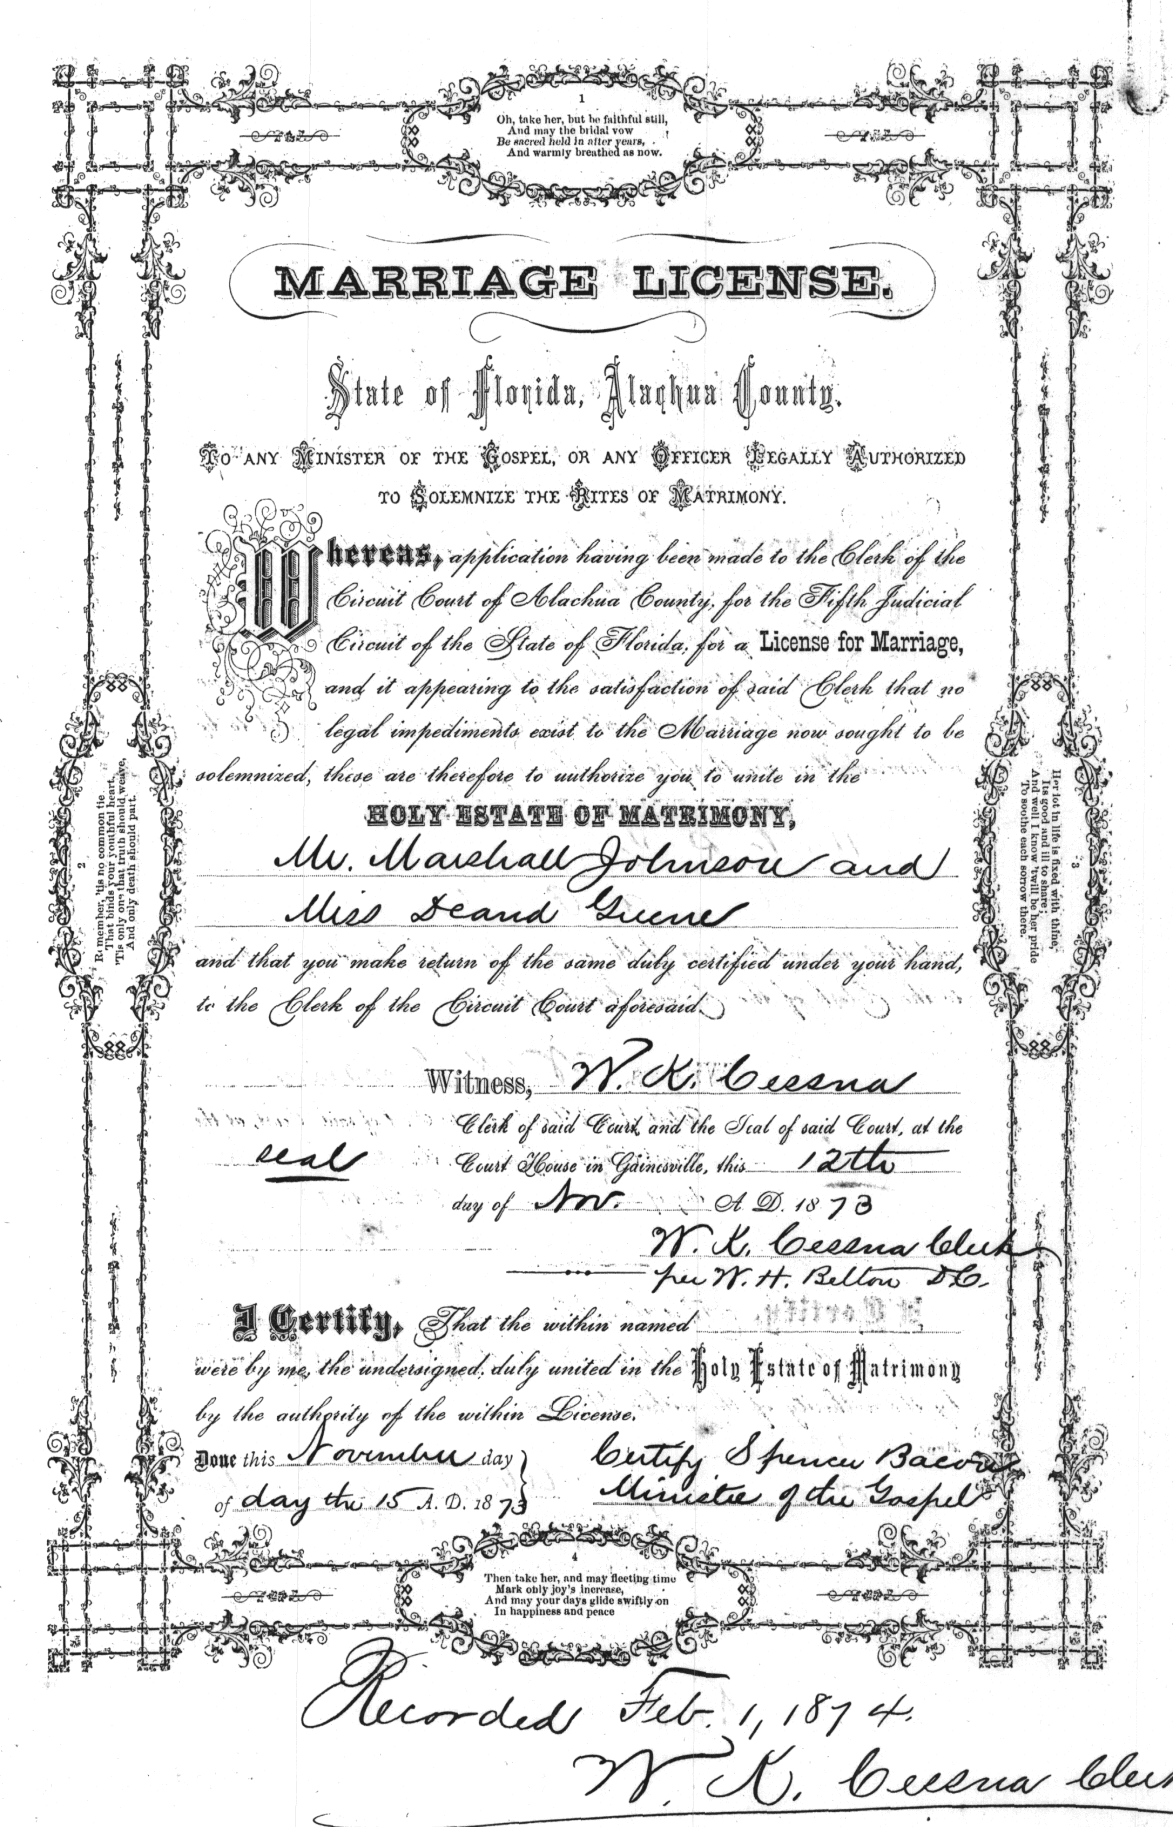 1
Oh, take her, but be faithful still,
And may the bridal vow
Be sacred held in after years,
And warmly breathed as now.
MARRIAGE LICENSE.
State of Florida, Alachua County.
TO ANY MINISTER OF THE GOSPEL, OR ANY OFFICER LEGALLY AUTHORIZED
TO SOLEMNIZE THE RITES OF MATRIMONY.
Whereas, application having been made to the Clerk of the
Circuit Court of Alachua County, for the Fifth Judicial
Circuit of the State of Florida, for a License for Marriage,
and it appearing to the satisfaction of said Clerk that no
legal impediments exist to the Marriage now sought to be
solemnized, these are therefore to authorize you to unite in the
HOLY ESTATE OF MATRIMONY,
Mr. Marshall Johnson and
Miss Deand Greene
and that you make return of the same duly certified under your hand,
to the Clerk of the Circuit Court aforesaid.
2
Remember, 'tis no common tie
That binds your youthful heart,
'Tis only one that truth should weave,
And only death should part.
3
Her lot in life is fixed with thine,
Its good and ill to share;
And well I know 'twill be her pride
To soothe each sorrow there.
Witness, W. K. Cessna
Clerk of said Court, and the Seal of said Court, at the
seal Court House in Gainesville, this 12th
day of Nov. A. D. 1873
W. K. Cessna Clerk
per W. H. Belton D.C.
I Certify, That the within named
were by me, the undersigned, duly united in the Holy Estate of Matrimony
by the authority of the within License.
Done this November day Certify Spencer Bacon
of day the 15 A. D. 1873 Minister of the Gospel
4
Then take her, and may fleeting time
Mark only joy's increase,
And may your days glide swiftly on
In happiness and peace
Recorded Feb. 1, 1874.
W. K. Cessna Clerk